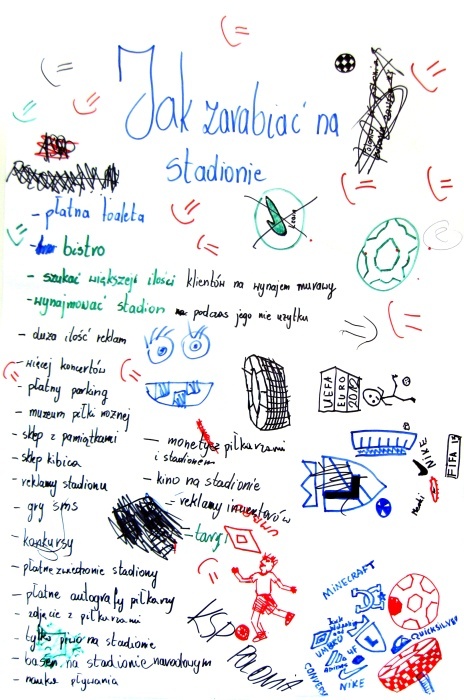 Jak zarabiać na
stadionie
- płatna toaleta
- bistro
- szukać większej ilości klientów na wynajem murawy
- wynajmować stadion podczas jego nie użytku
- duża ilość reklam
- więcej koncertów
- płatny parking
- muzeum piłki nożnej
- sklep z pamiątkami
- sklep kibica
- reklamy stadionu
- gry sms
- konkursy
- płatne zwiedzanie stadionu
- płatne autografy piłkarzy
- zdjęcie z piłkarzami
- tylko piwo na stadionie
- basen na stadionie narodowym
- nauka pływania
- monety z piłkarzami
i stadionem
- kino na stadionie
- reklamy inwestorów
- targi
UEFA
EURO
2012
NIKE
FIFA
UMBRO
KSP POLONIA
MINECRAFT
QUICKSILVER
UMBRO
CONVERS
NIKE